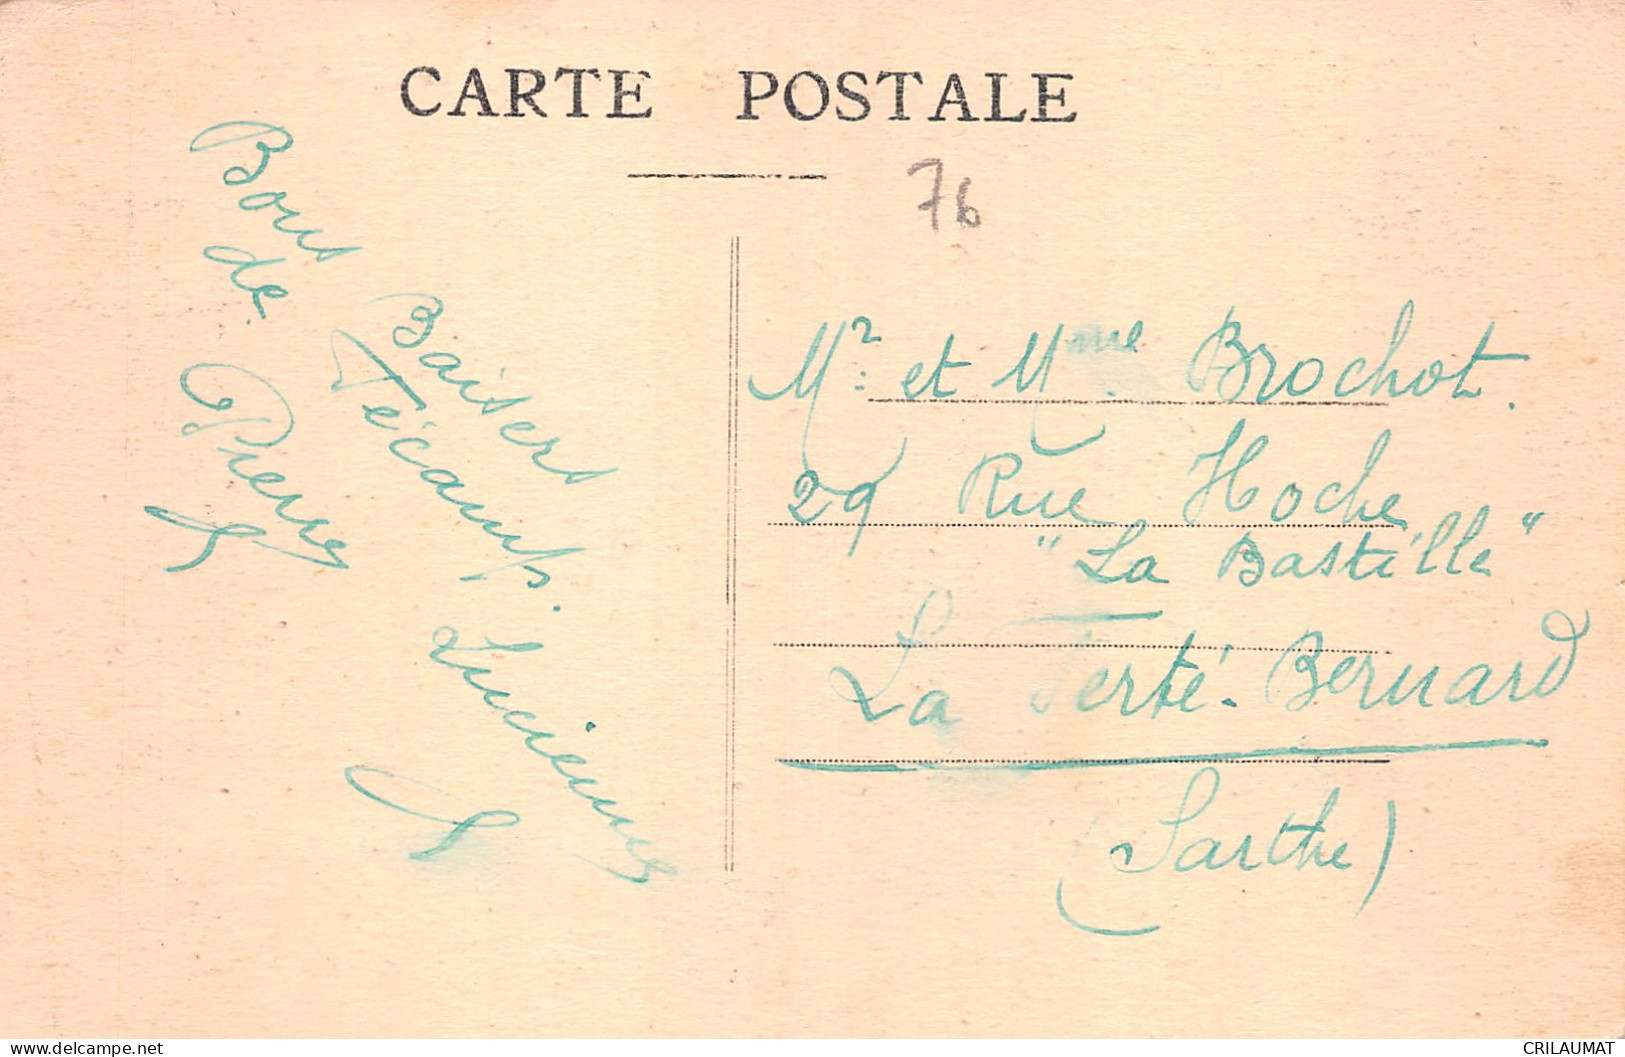 CARTE POSTALE
76
Bons Baisers
de Fécamp.
Pierre Lucienne
Mr. et Mme. Brochot.
29 Rue Hoche
"La Bastille"
La Ferté-Bernard
(Sarthe)
www.delcampe.net
CRILAUMAT